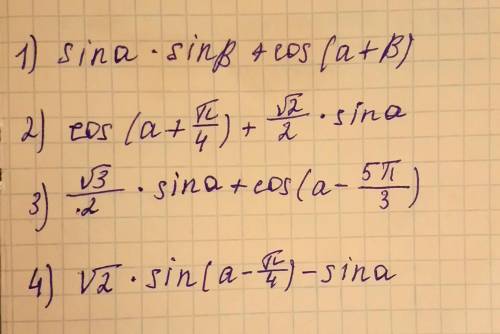 1) sina · sinβ + cos(a+β)
2) cos(a+π/4) + √2/2 · sina
3) √3/2 · sina + cos(a - 5π/3)
4) √2 · sin(a - π/4) - sina